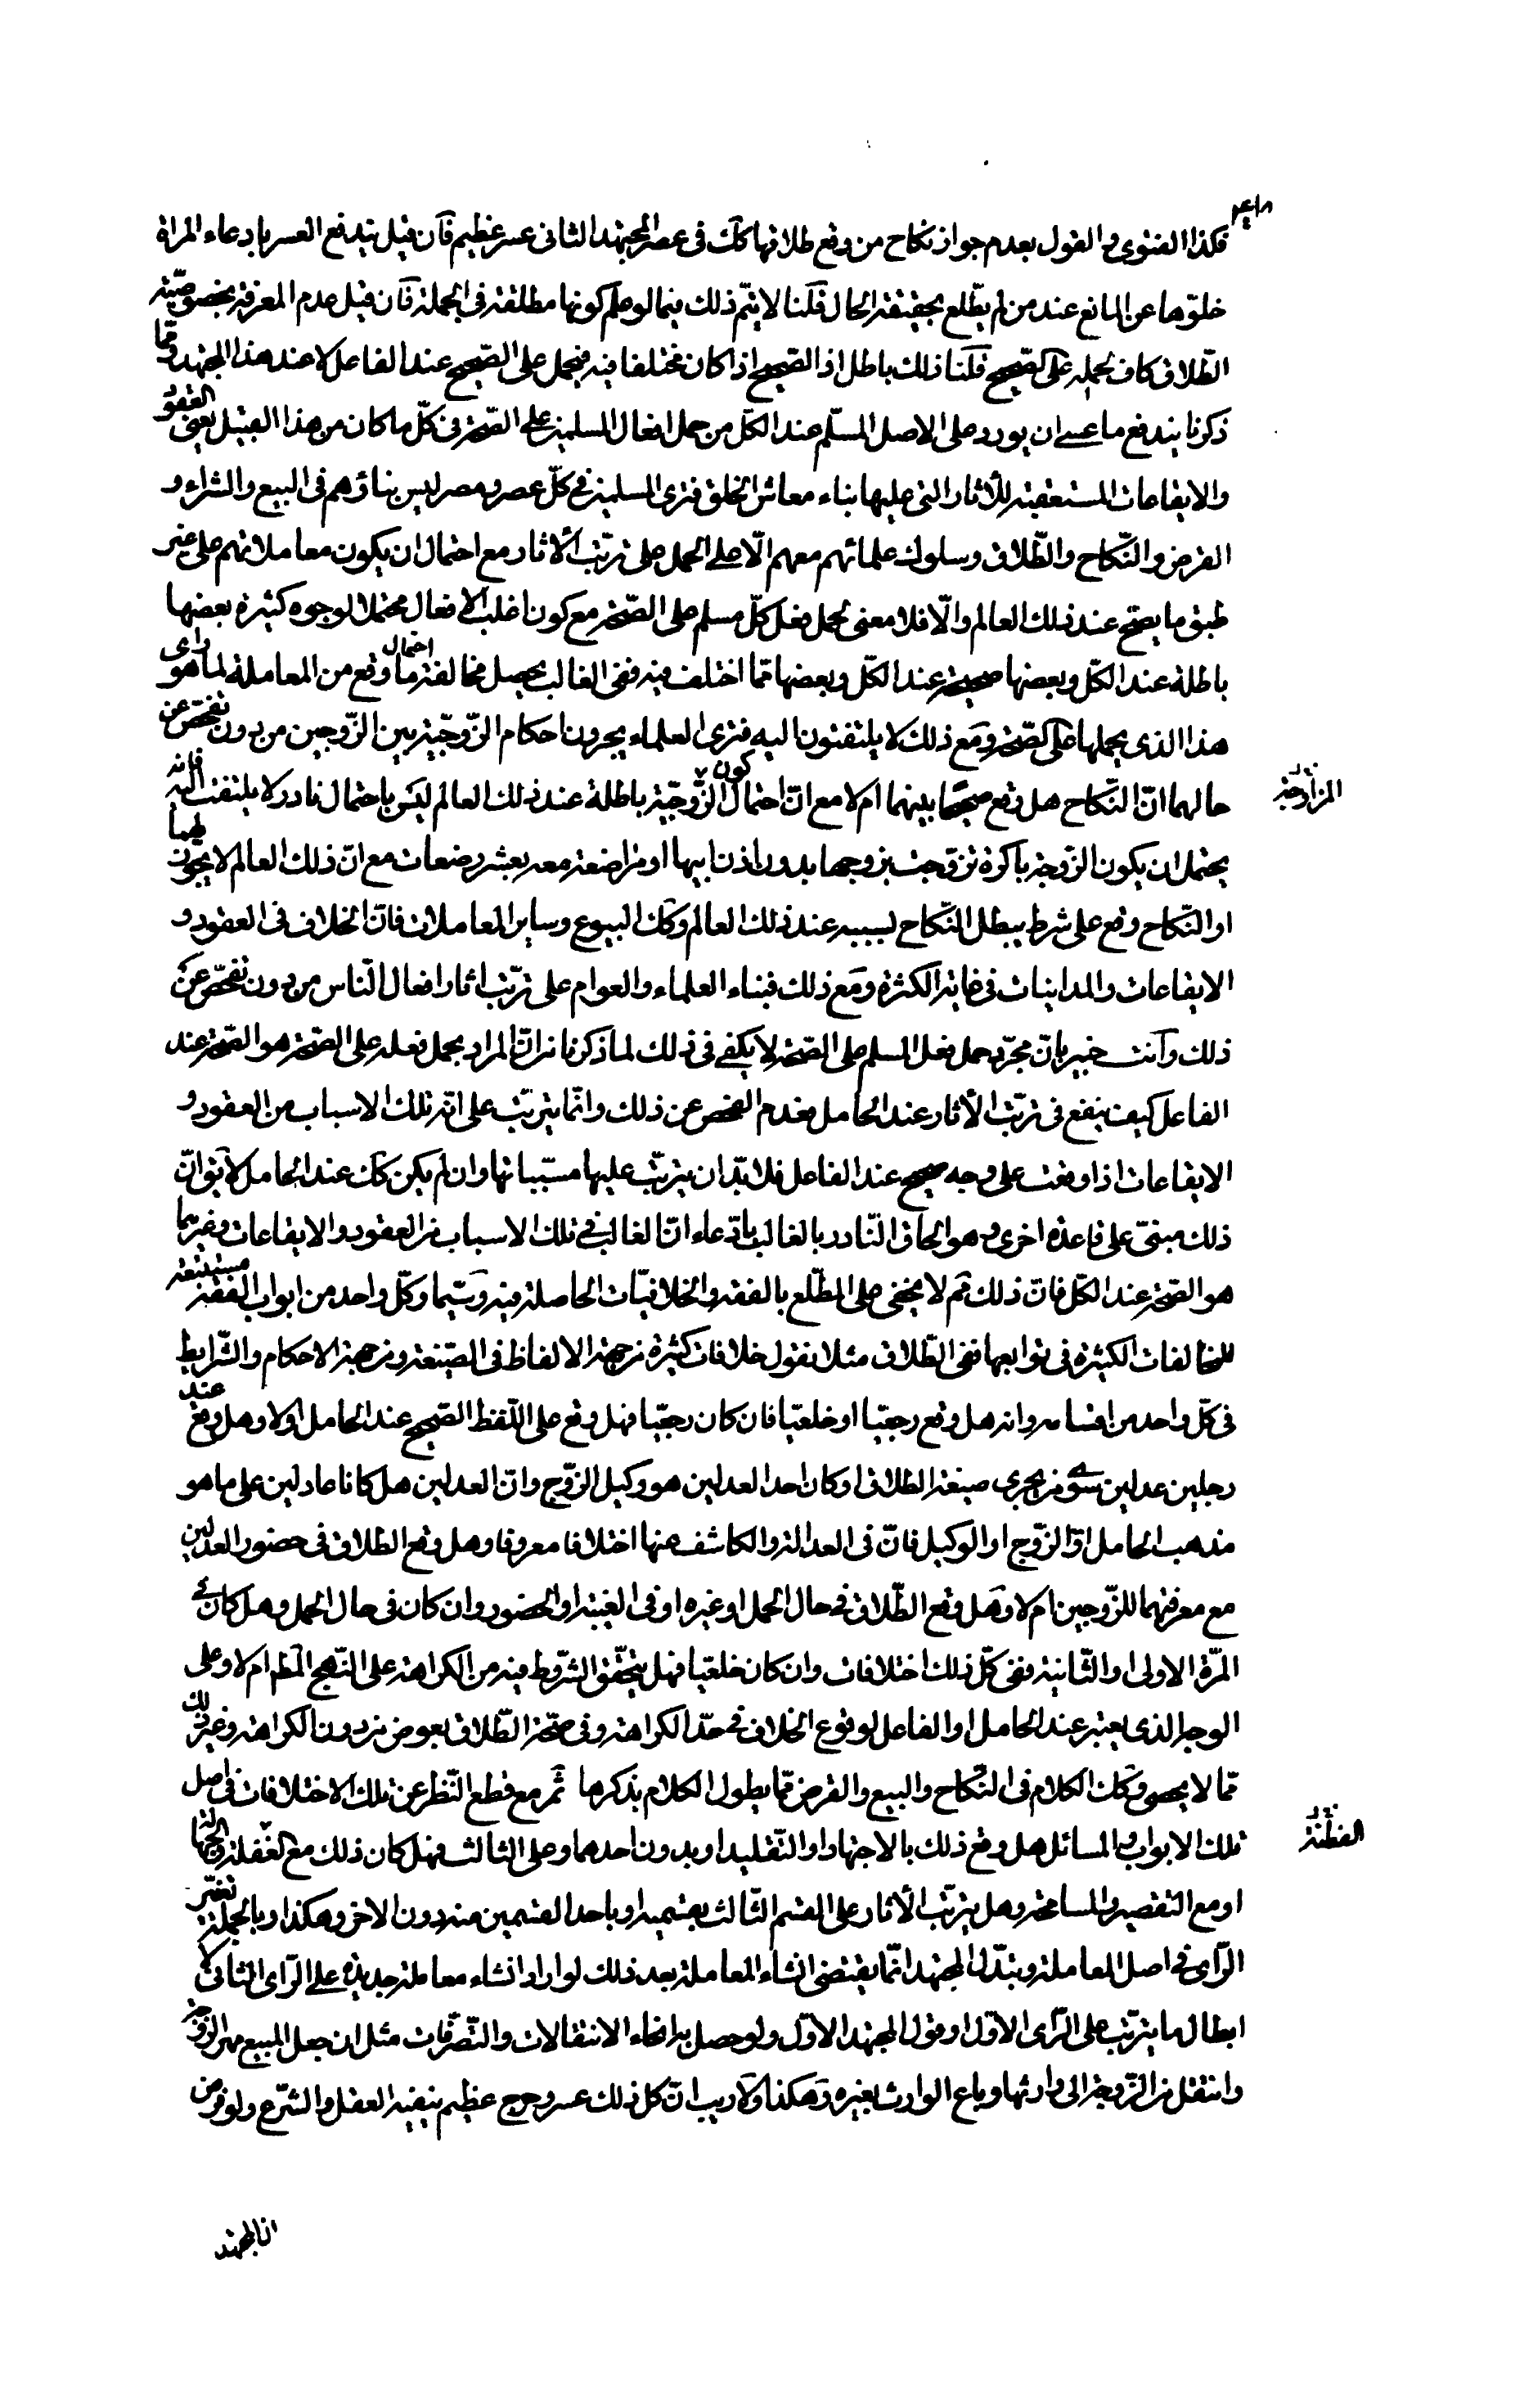 فكذا الفتوى و القول بعدم جواز نكاح من وقع طلاقها كك فى عصر المجتهد الثانى عسر عظيم فان قيل يندفع العسر بادعاء المراة
خلوّها عن المانع عند من لم يطّلع بحقيقة الحال قلنا لا يتم ذلك فيما لو علم كونها مطلقة فى الجملة فان قيل عدم المعرفة بخصوصيّة
الطّلاق كاف لحمله على الصّحيح قلنا ذلك باطل اذ الصّحيح اذا كان مختلفا فيه فيحمل على الصّحيح عند الفاعل لا عند هذا المجتهد و ممّا
ذكرنا يندفع ما عسى ان يورد على الاصل المسلّم عند الكل من حمل افعال المسلمين على الصّحة فى كلّ ما كان من هذا القبيل يعنى العقود
و الايقاعات المستعقبة للآثار التى عليها بناء معاش الخلق فترى المسلمين فى كلّ عصر و مصر ليس بناؤهم فى البيع و الشراء و
القرض و النّكاح و الطّلاق و سلوك علمائهم معهم الّا على الحمل على ترتّب الآثار مع احتمال ان يكون معاملاتهم على غير
طبق ما يصحّ عند ذلك العالم و الّا فلا معنى لحمل فعل كلّ مسلم على الصّحة مع كون اغلب الافعال محتملا لوجوه كثيرة بعضها
باطلة عند الكلّ و بعضها صحيحة عند الكلّ و بعضها ممّا اختلف فيه ففى الغالب يحصل احتمال مخالفة ما وقع من المعاملة لما هو راى
هذا الذى يحملها على الصّحة و مع ذلك لا يلتفتون اليه فترى العلماء يجرون احكام الزّوجيّة بين الزّوجين من دون تفحّص عن
حالهما انّ النّكاح هل وقع صحيحا بينهما ام لا مع انّ احتمال كون الزّوجيّة باطلة عند ذلك العالم ليس باحتمال نادر لا يلتفت اليه فانه
المزاوجة
يحتمل ان يكون الزّوجة باكرة تزوّجت بزوجها بدون اذن ابيها او مراضعة معه بعشر رضعات مع انّ ذلك العالم لا يجوّزهما
او النّكاح وقع على شرط يبطل النّكاح بسببه عند ذلك العالم و كك البيوع و ساير المعاملات فانّ الخلاف فى العقود و
الايقاعات و المداينات فى غاية الكثرة و مع ذلك فبناء العلماء و العوام على ترتّب اثار افعال النّاس من دون تفحّص عن
ذلك و انت خبير بانّ مجرّد حمل فعل المسلم على الصّحة لا يكفى فى ذلك لما ذكرنا من انّ المراد بحمل فعله على الصّحة هو الصّحة عند
الفاعل كيف ينفع فى ترتّب الآثار عند الحامل فعدم الفحص عن ذلك و انّما يترتّب على انّ تلك الاسباب من العقود و
الايقاعات اذا وقعت على وجه صحيح عند الفاعل فلا بدّ ان يترتّب عليها مسبّباتها و ان لم يكن كك عند الحامل لا يق انّ
ذلك مبنىّ على قاعدة اخرى و هو الحاق النّادر بالغالب بادّعاء انّ الغالب فى تلك الاسباب من العقود و الايقاعات و غيرهما
هو الصّحة عند الكلّ فانّ ذلك ثم لا يخفى على المطّلع بالفقه و الخلافيّات الحاصلة فيه و سيّما و كلّ واحد من ابواب الفقه مستتبعة
للمخالفات الكثيرة فى توابعها ففى الطّلاق مثلا نقول خلافات كثيرة من جهة الالفاظ فى الصّيغة و من جهة الاحكام و الشّرايط
فى كلّ واحد من اقسامه و انه هل وقع رجعيّا او خلعيّا فان كان رجعيّا فهل وقع على اللّفظ الصّحيح عند الحامل او لا و هل وقع عند
رجلين عدلين سوى من يجرى صيغة الطلاق او كان احد العدلين هو وكيل الزّوج و انّ العدلين هل كانا عادلين على ما هو
مذهب الحامل او الزّوج او الوكيل فانّ فى العدالة و الكاشف عنها اختلافا معروفا و هل وقع الطلاق فى حضور العدلين
مع معرفتهما للزّوجين ام لا و هل وقع الطّلاق فى حال الحمل او غيره او فى الغيبة او الحضور و ان كان فى حال الحمل و هل كان فى
المرّة الاولى او الثّانية و فى كلّ ذلك اختلافات و ان كان خلعيّا فهل يتحقّق الشّروط فيه من الكراهة على النّهج المط ام لا و على
الوجه الذى يعتبر عند الحامل او الفاعل لوقوع الخلاف فى حدّ الكراهة و فى صحّة الطّلاق بعوض من دون الكراهة و غير ذلك
ممّا لا يحصى و كك الكلام فى النّكاح و البيع و القرض ممّا يطول الكلام بذكرها ثم مع قطع النّظر عن تلك الاختلافات فى اصل
تلك الابواب و المسائل هل وقع ذلك بالاجتهاد او التّقليد او بدون احدهما و على الثالث فهل كان ذلك مع الغفلة و الجهالة
الفطنة
او مع التقصير و المسامحة و هل يترتّب الآثار على القسم الثّالث بقسميه او باحد القسمين منه دون الاخر و هكذا و بالجملة تغيّر
الرّاى فى اصل المعاملة و تبدّل المجتهد انّما يقتضى انشاء المعاملة بعد ذلك لو اراد انشاء معاملة جديدة على الرّاى الثانى لا
ابطال ما يترتّب على الرّاى الاوّل او قول المجتهد الاوّل و لو حصل به انحاء الانتقالات و التّصرّفات مثل ان جعل المبيع مهر الزوجة
و انتقل من الزّوجة الى وارثها و باع الوارث بغيره و هكذا و لا ريب انّ كل ذلك عسر و حرج عظيم ينفيه العقل و الشّرع و لو فرض